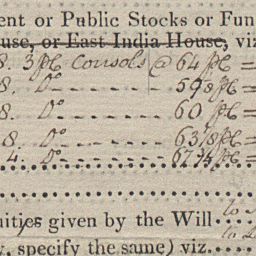 ent or Public Stocks or Fun
use, or East India House, viz
8. 3 p Ct Consols @ 64 p Ct =
8. Do - - - - - - 59 8 p Ct =
8. Do - - - - - - 60 p Ct =
8. Do - - - - - - 63 1/8 p Ct =
4. Do - - - - - - 67 1/4 p Ct =
uities given by the Will
y, specify the same) viz.